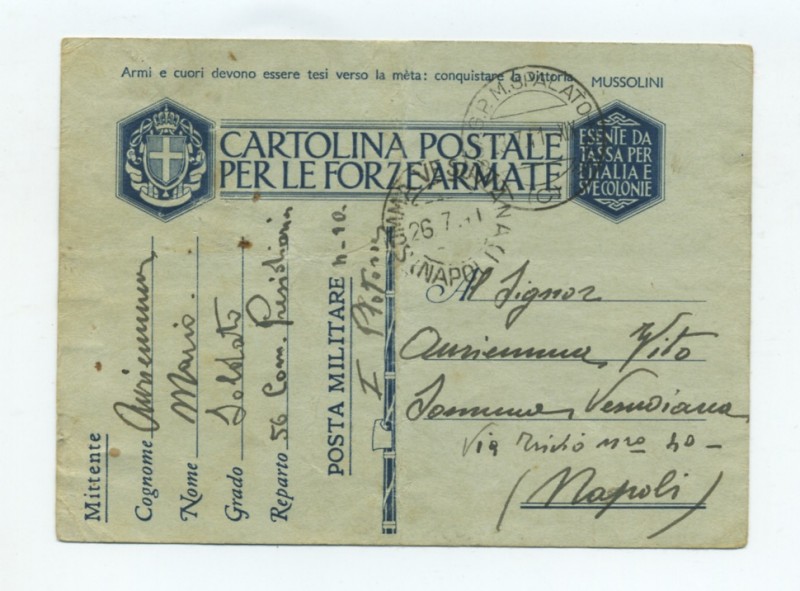 Armi e cuori devono essere tesi verso la mèta: conquistare la vittoria MUSSOLINI
CARTOLINA POSTALE
PER LE FORZE ARMATE
ESENTE DA
TASSA PER
L'ITALIA E
SUE COLONIE
P.M. SPALATO
SOMMA VESUVIANA
26 7 41
(NAPOLI)
Mittente
Cognome Auriemma
Nome Mario
Grado Soldato
Reparto 56 Com. Presidiaria
POSTA MILITARE n-10.
I Plotone
Al Signor
Auriemma Vito
Somma Vesuviana
Via nro 40 -
(Napoli)